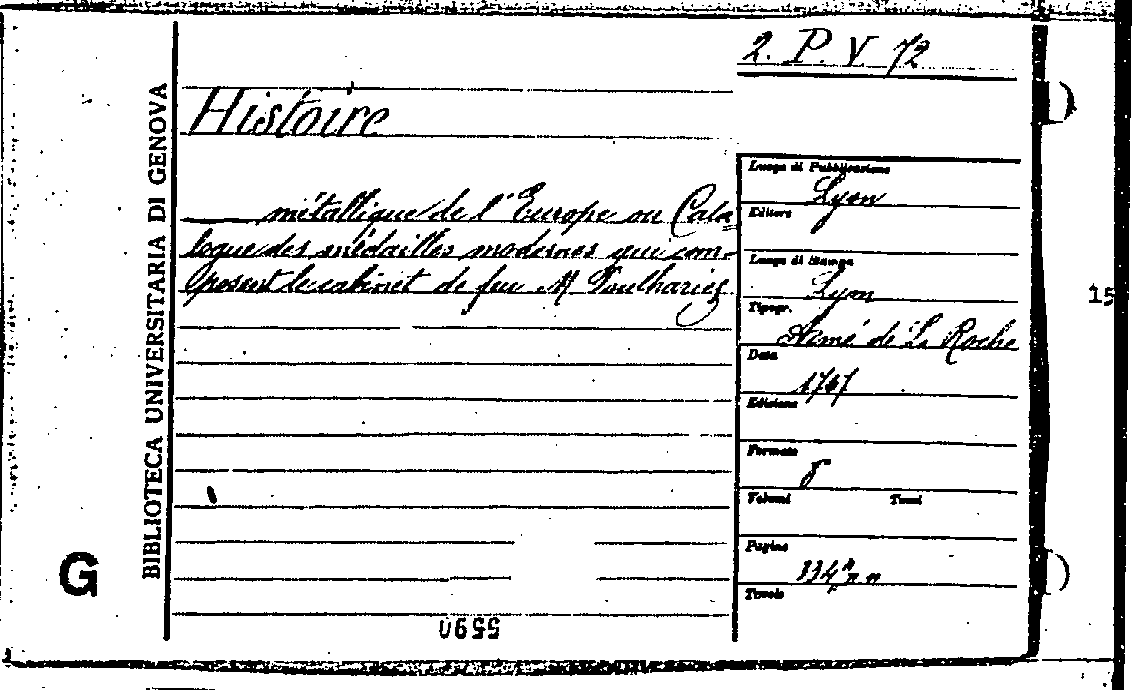 2. P. V. 72
Histoire
métallique de l'Europe ou Cata
logue des médailles modernes qui com-
posent le cabinet de feu M Poulhariez
BIBLIOTECA UNIVERSITARIA DI GENOVA
G
Luogo di Pubblicazione
Lyon
Editore
Luogo di Stampa
Lyon
Tipogr.
Aimé de La Roche
Data
1767
Edizione
Formato
8
Volumi Tomi
Pagine
334
Tavole
5590
15